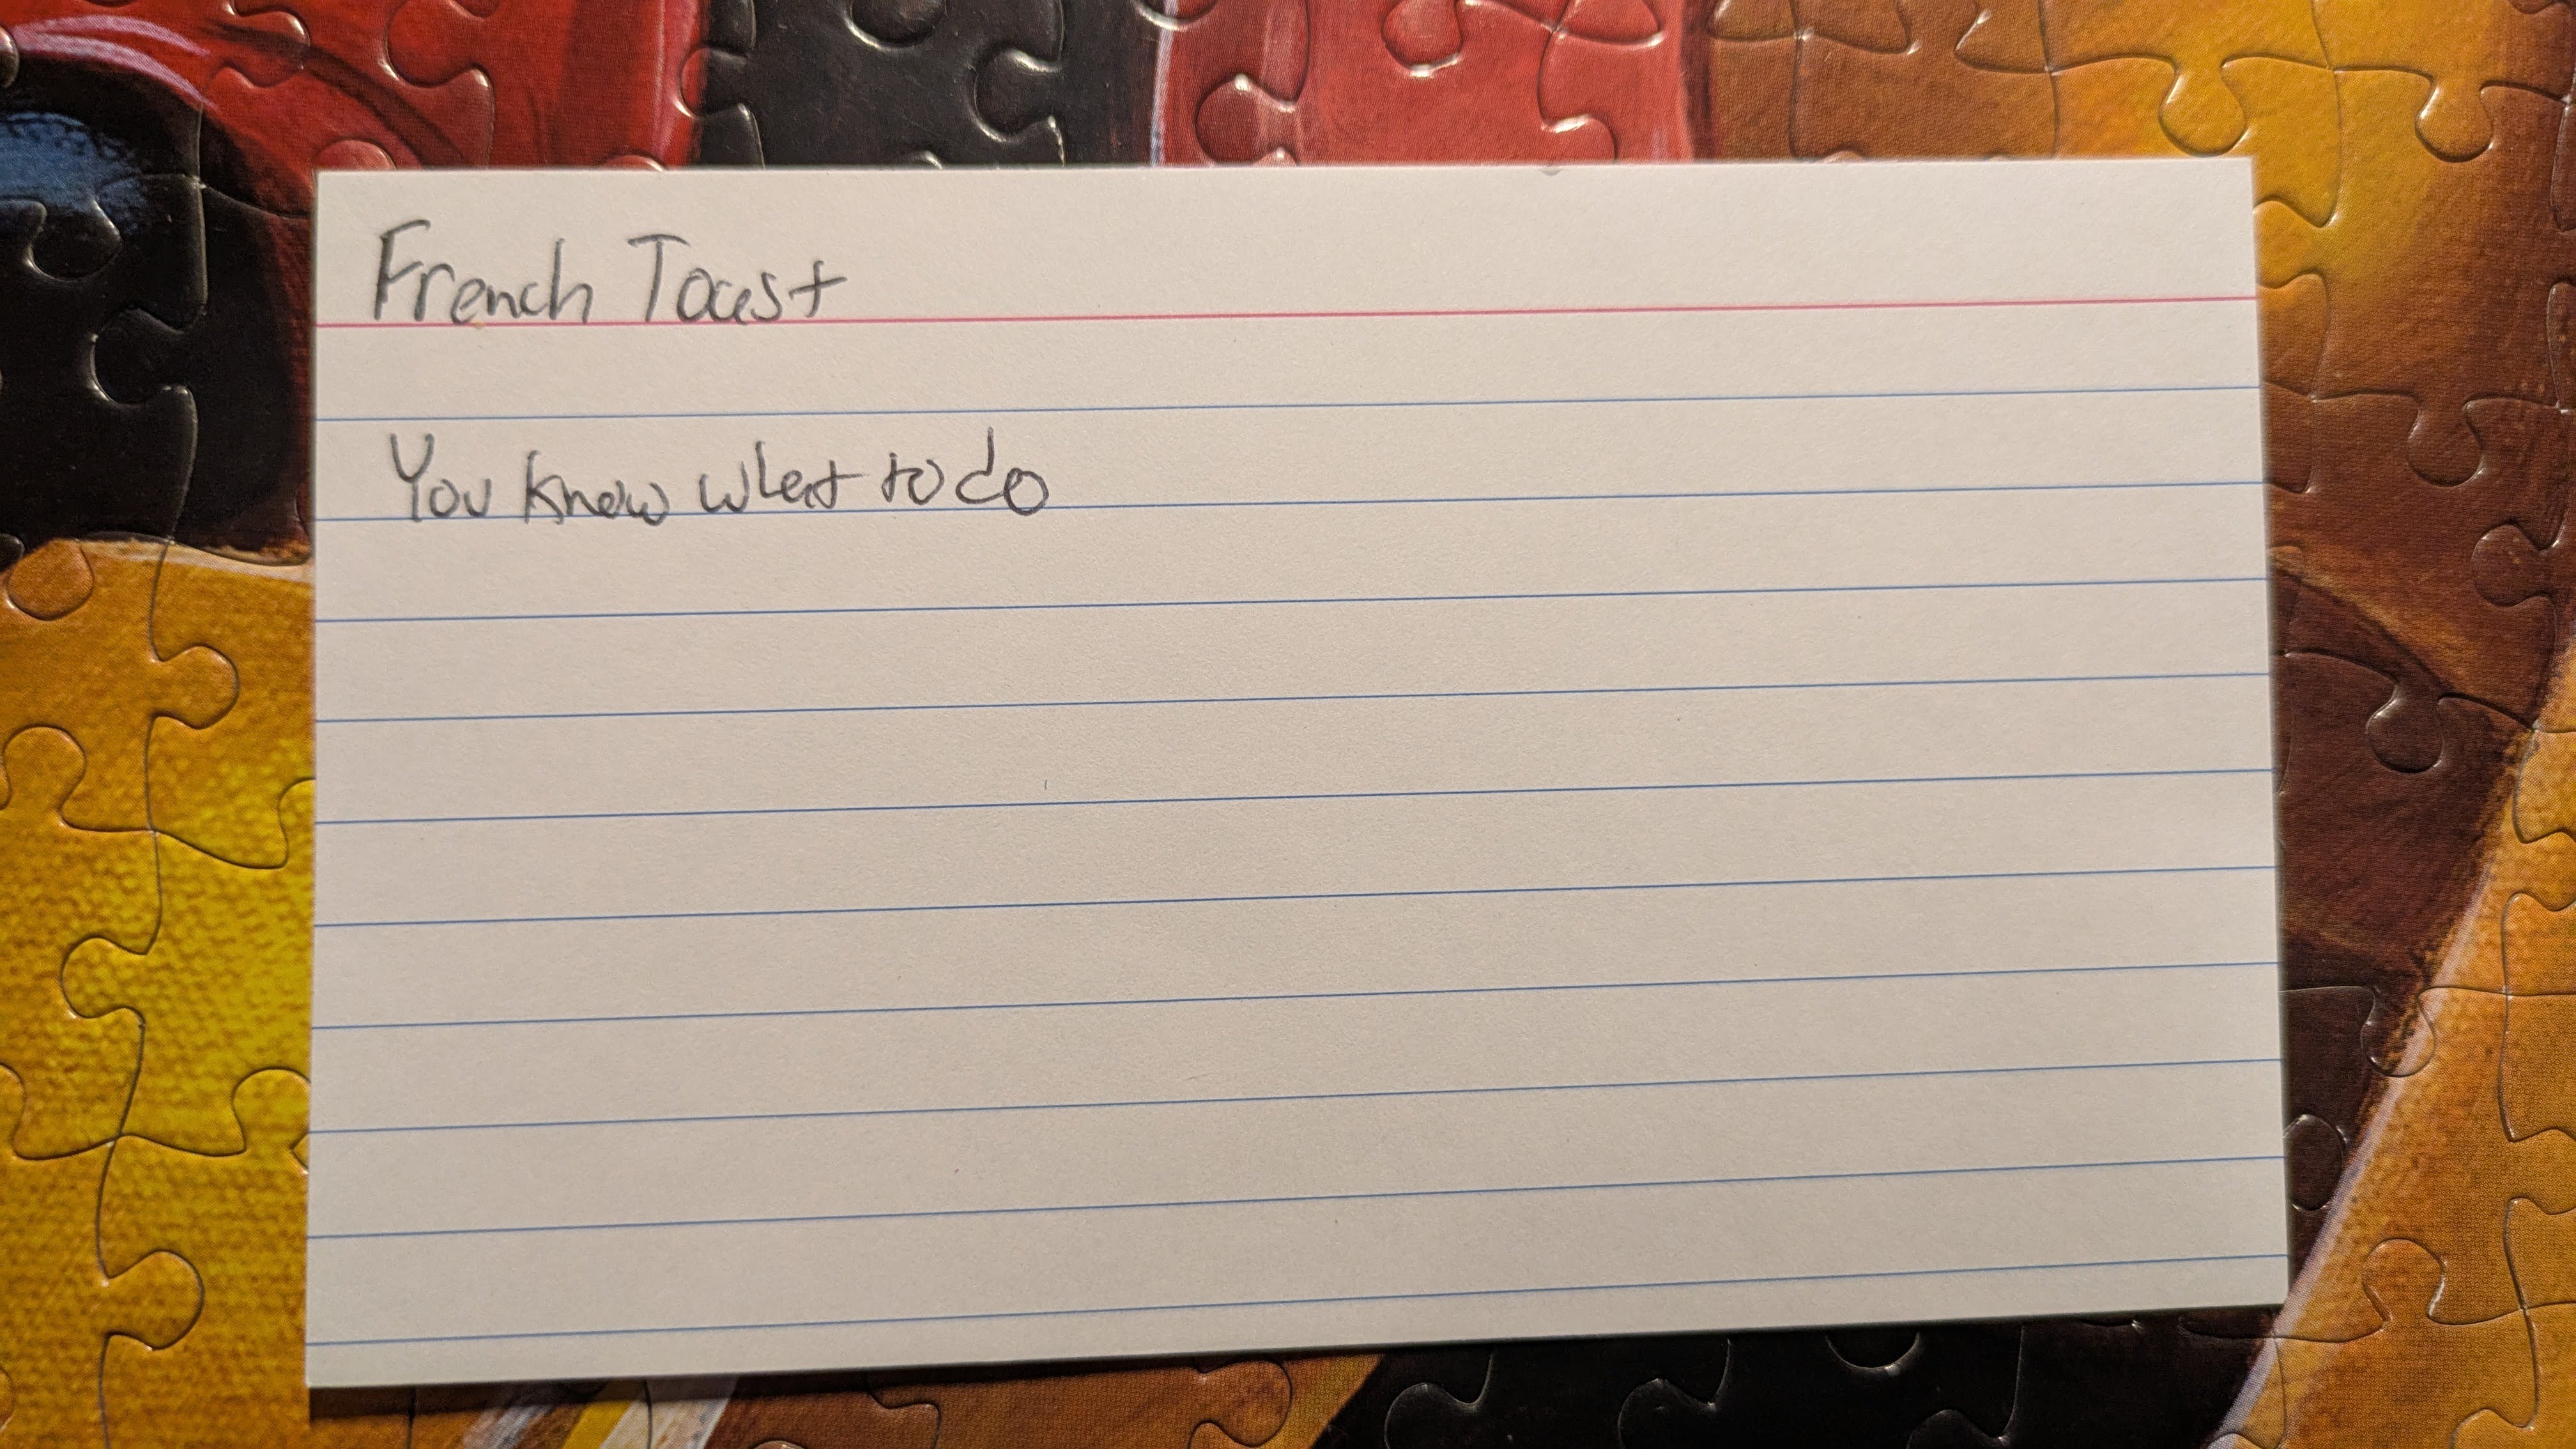 French Toast
You know what to do